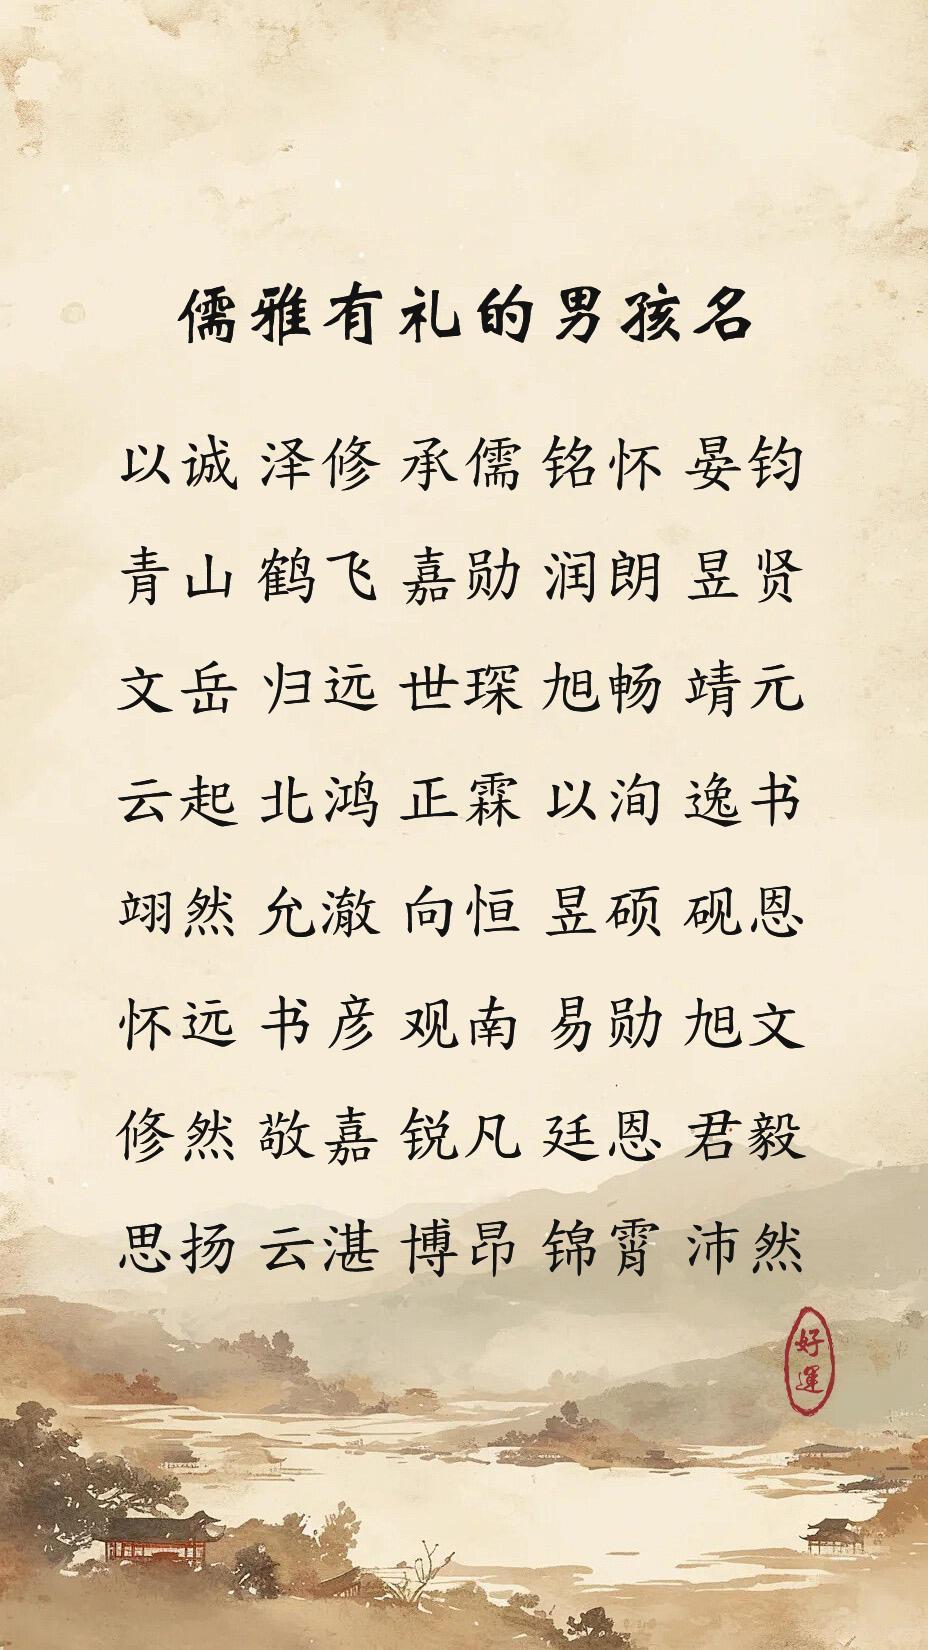 儒雅有礼的男孩名
以诚 泽修 承儒 铭怀 晏钧
青山 鹤飞 嘉勋 润朗 昱贤
文岳 归远 世琛 旭畅 靖元
云起 北鸿 正霖 以洵 逸书
翊然 允澈 向恒 昱硕 砚恩
怀远 书彦 观南 易勋 旭文
修然 敬嘉 锐凡 廷恩 君毅
思扬 云湛 博昂 锦霄 沛然
好運